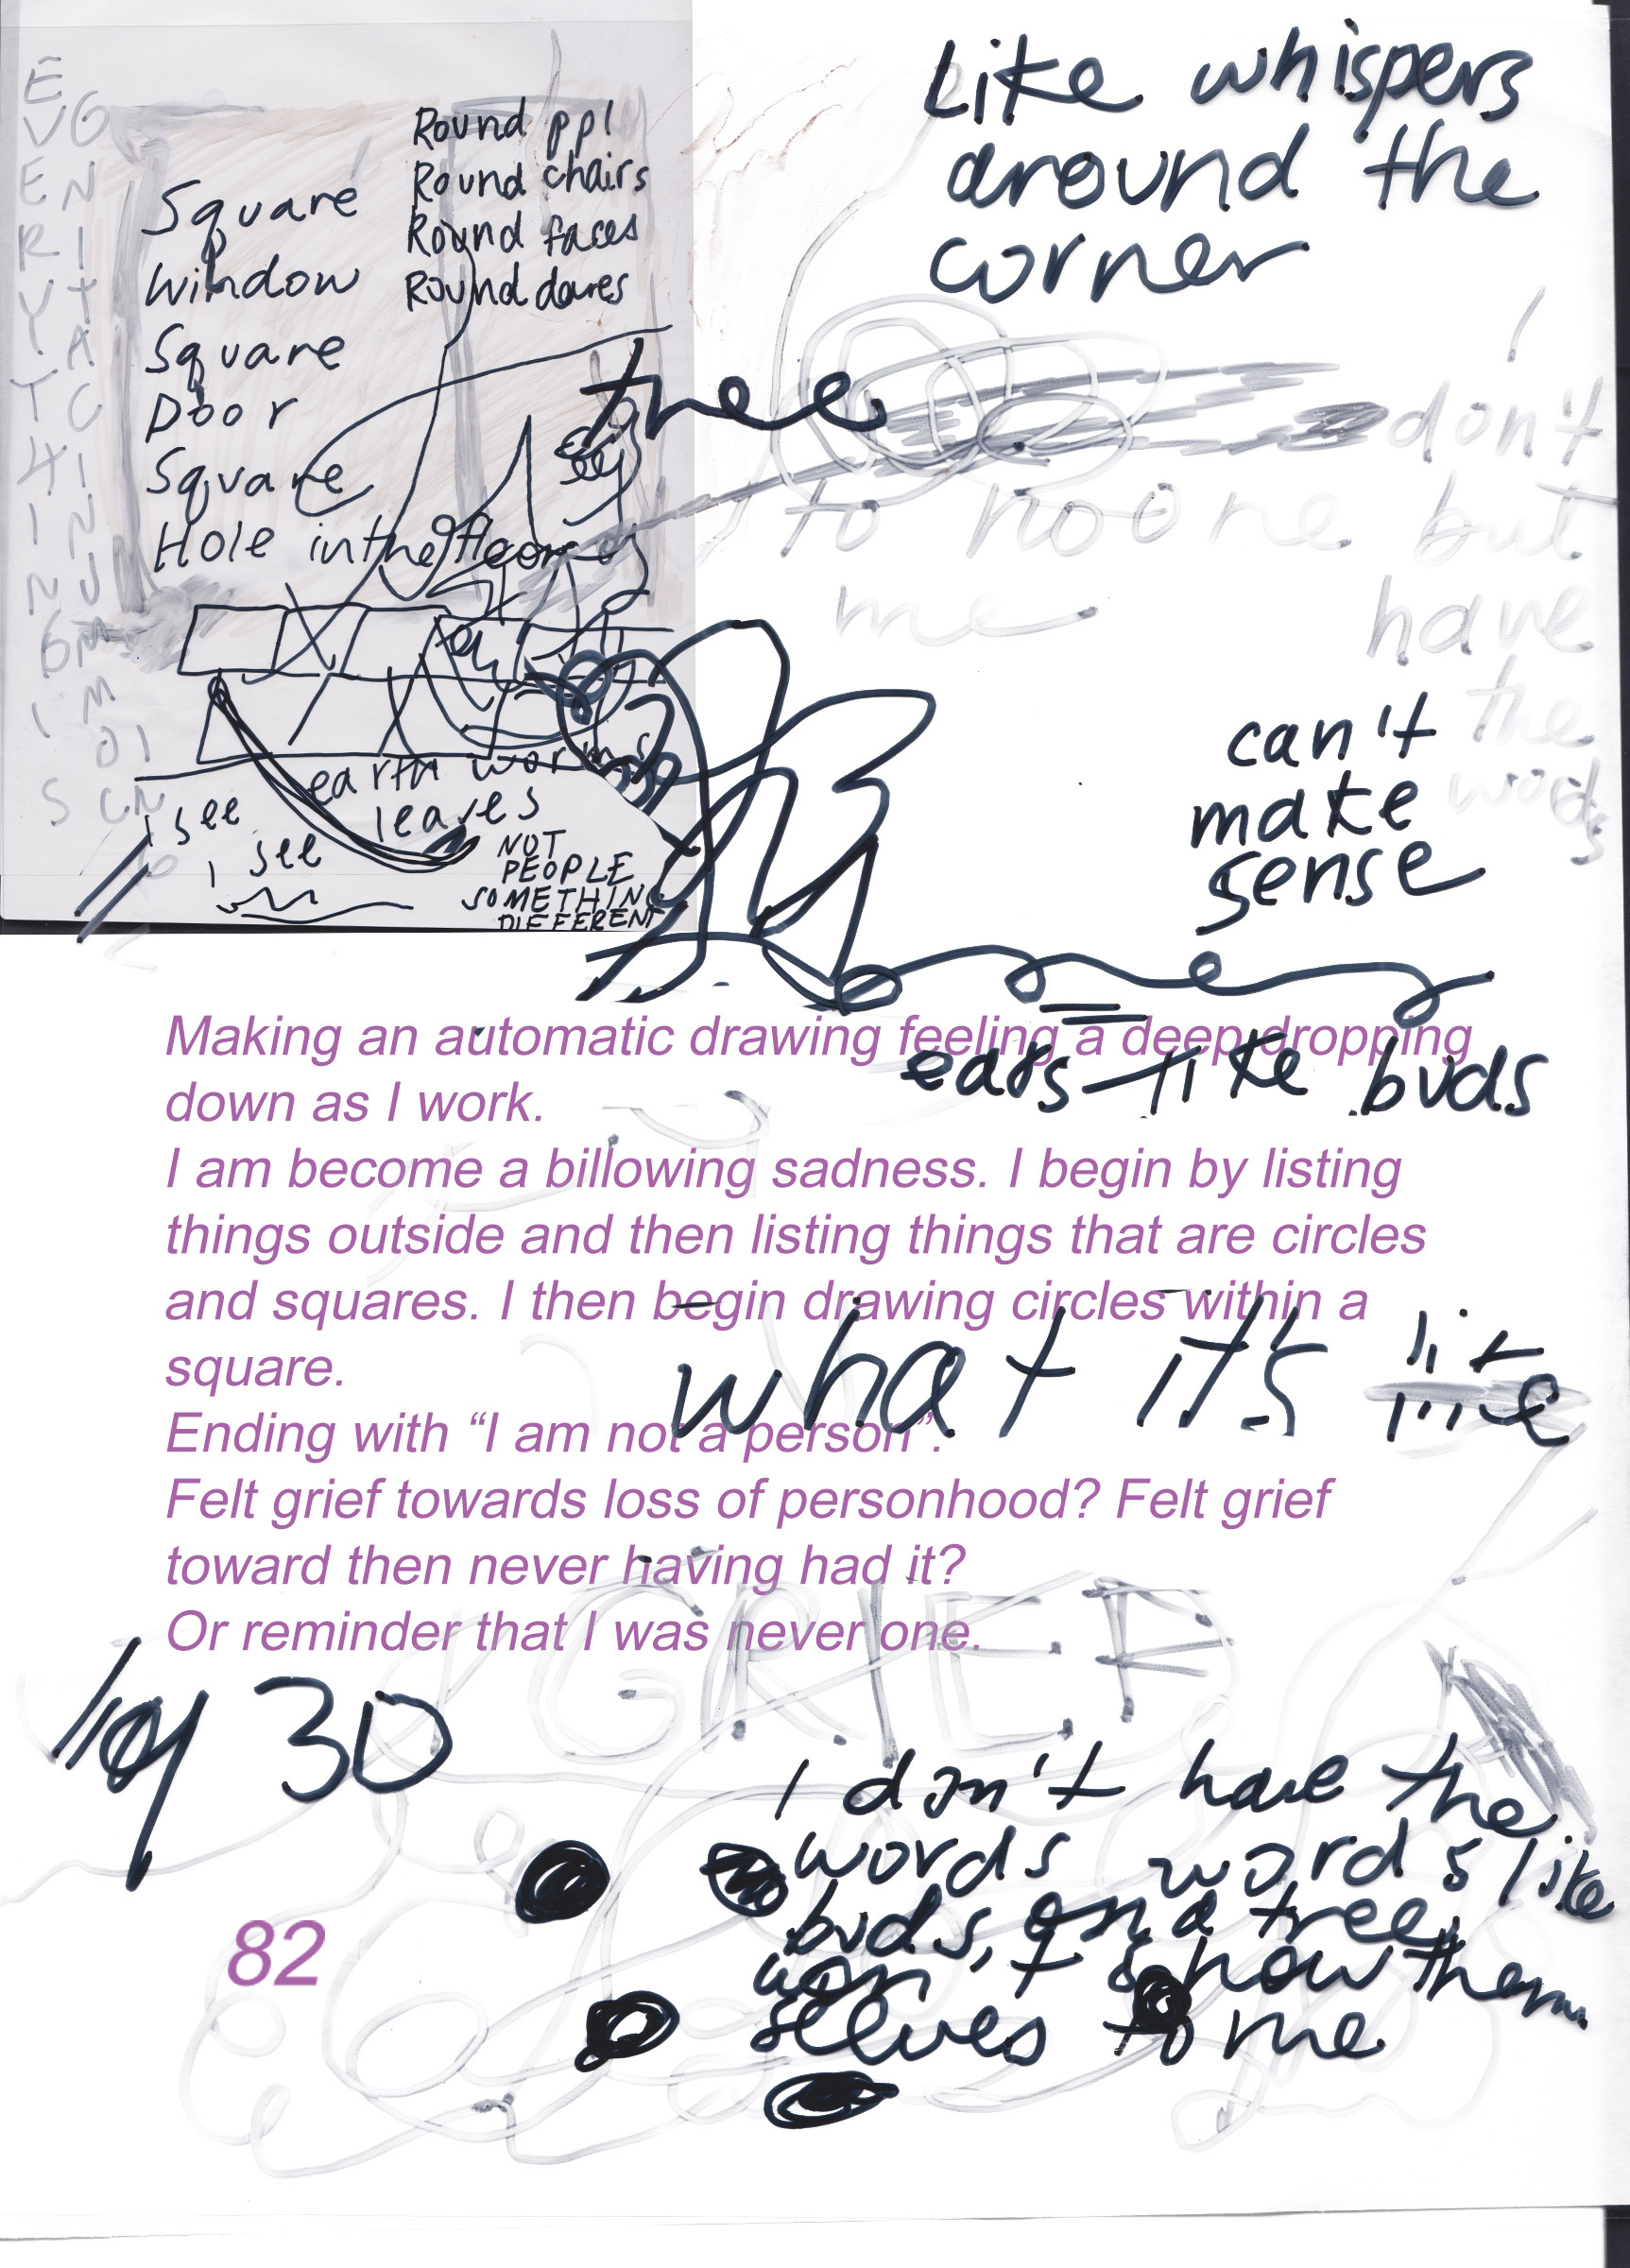 EVERYTHING IS
Square
Window
Square
Door
Square
Hole in the floor
Round ppl
Round chairs
Round faces
Round dares
tree
I see earth worms
I see leaves
NOT
PEOPLE
SOMETHING
DIFFERENT
Like whispers
around the
corner
I
don't
to no one but
me have
the
words
can't
make
sense
Making an automatic drawing feeling a deep dropping
down as I work.
ears like buds
I am become a billowing sadness. I begin by listing
things outside and then listing things that are circles
and squares. I then begin drawing circles within a
square.
what it's like
Ending with “I am not a person”.
Felt grief towards loss of personhood? Felt grief
toward then never having had it?
Or reminder that I was never one.
GRIEF
30
I don't have the
words words like
buds, on a tree,
won't show them
selves to me
82